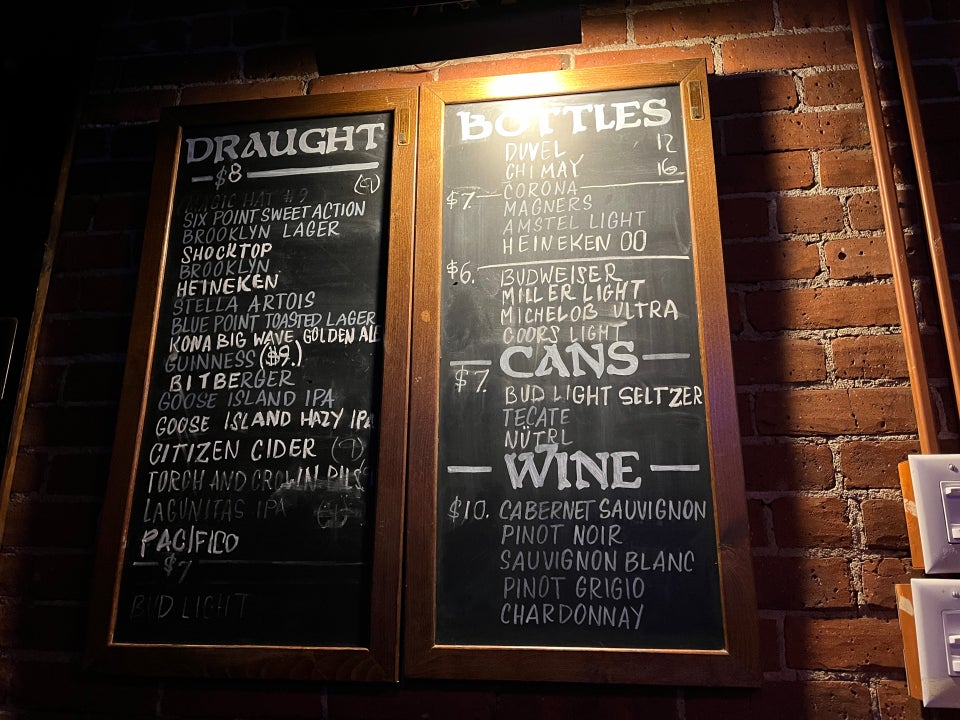 DRAUGHT
$8
MAGIC HAT #9
SIX POINT SWEET ACTION
BROOKLYN LAGER
SHOCKTOP
BROOKLYN
HEINEKEN
STELLA ARTOIS
BLUE POINT TOASTED LAGER
KONA BIG WAVE, GOLDEN ALE
GUINNESS ($9.)
BITBERGER
GOOSE ISLAND IPA
GOOSE ISLAND HAZY IPA
CITIZEN CIDER (9)
TORCH AND CROWN PILS
LAGUNITAS IPA
PACIFICO
$7
BUD LIGHT
BOTTLES
DUVEL 12
CHIMAY 16
$7. CORONA
MAGNERS
AMSTEL LIGHT
HEINEKEN 00
$6. BUDWEISER
MILLER LIGHT
MICHELOB ULTRA
COORS LIGHT
CANS
$7. BUD LIGHT SELTZER
TECATE
NÜTRL
WINE
$10. CABERNET SAUVIGNON
PINOT NOIR
SAUVIGNON BLANC
PINOT GRIGIO
CHARDONNAY